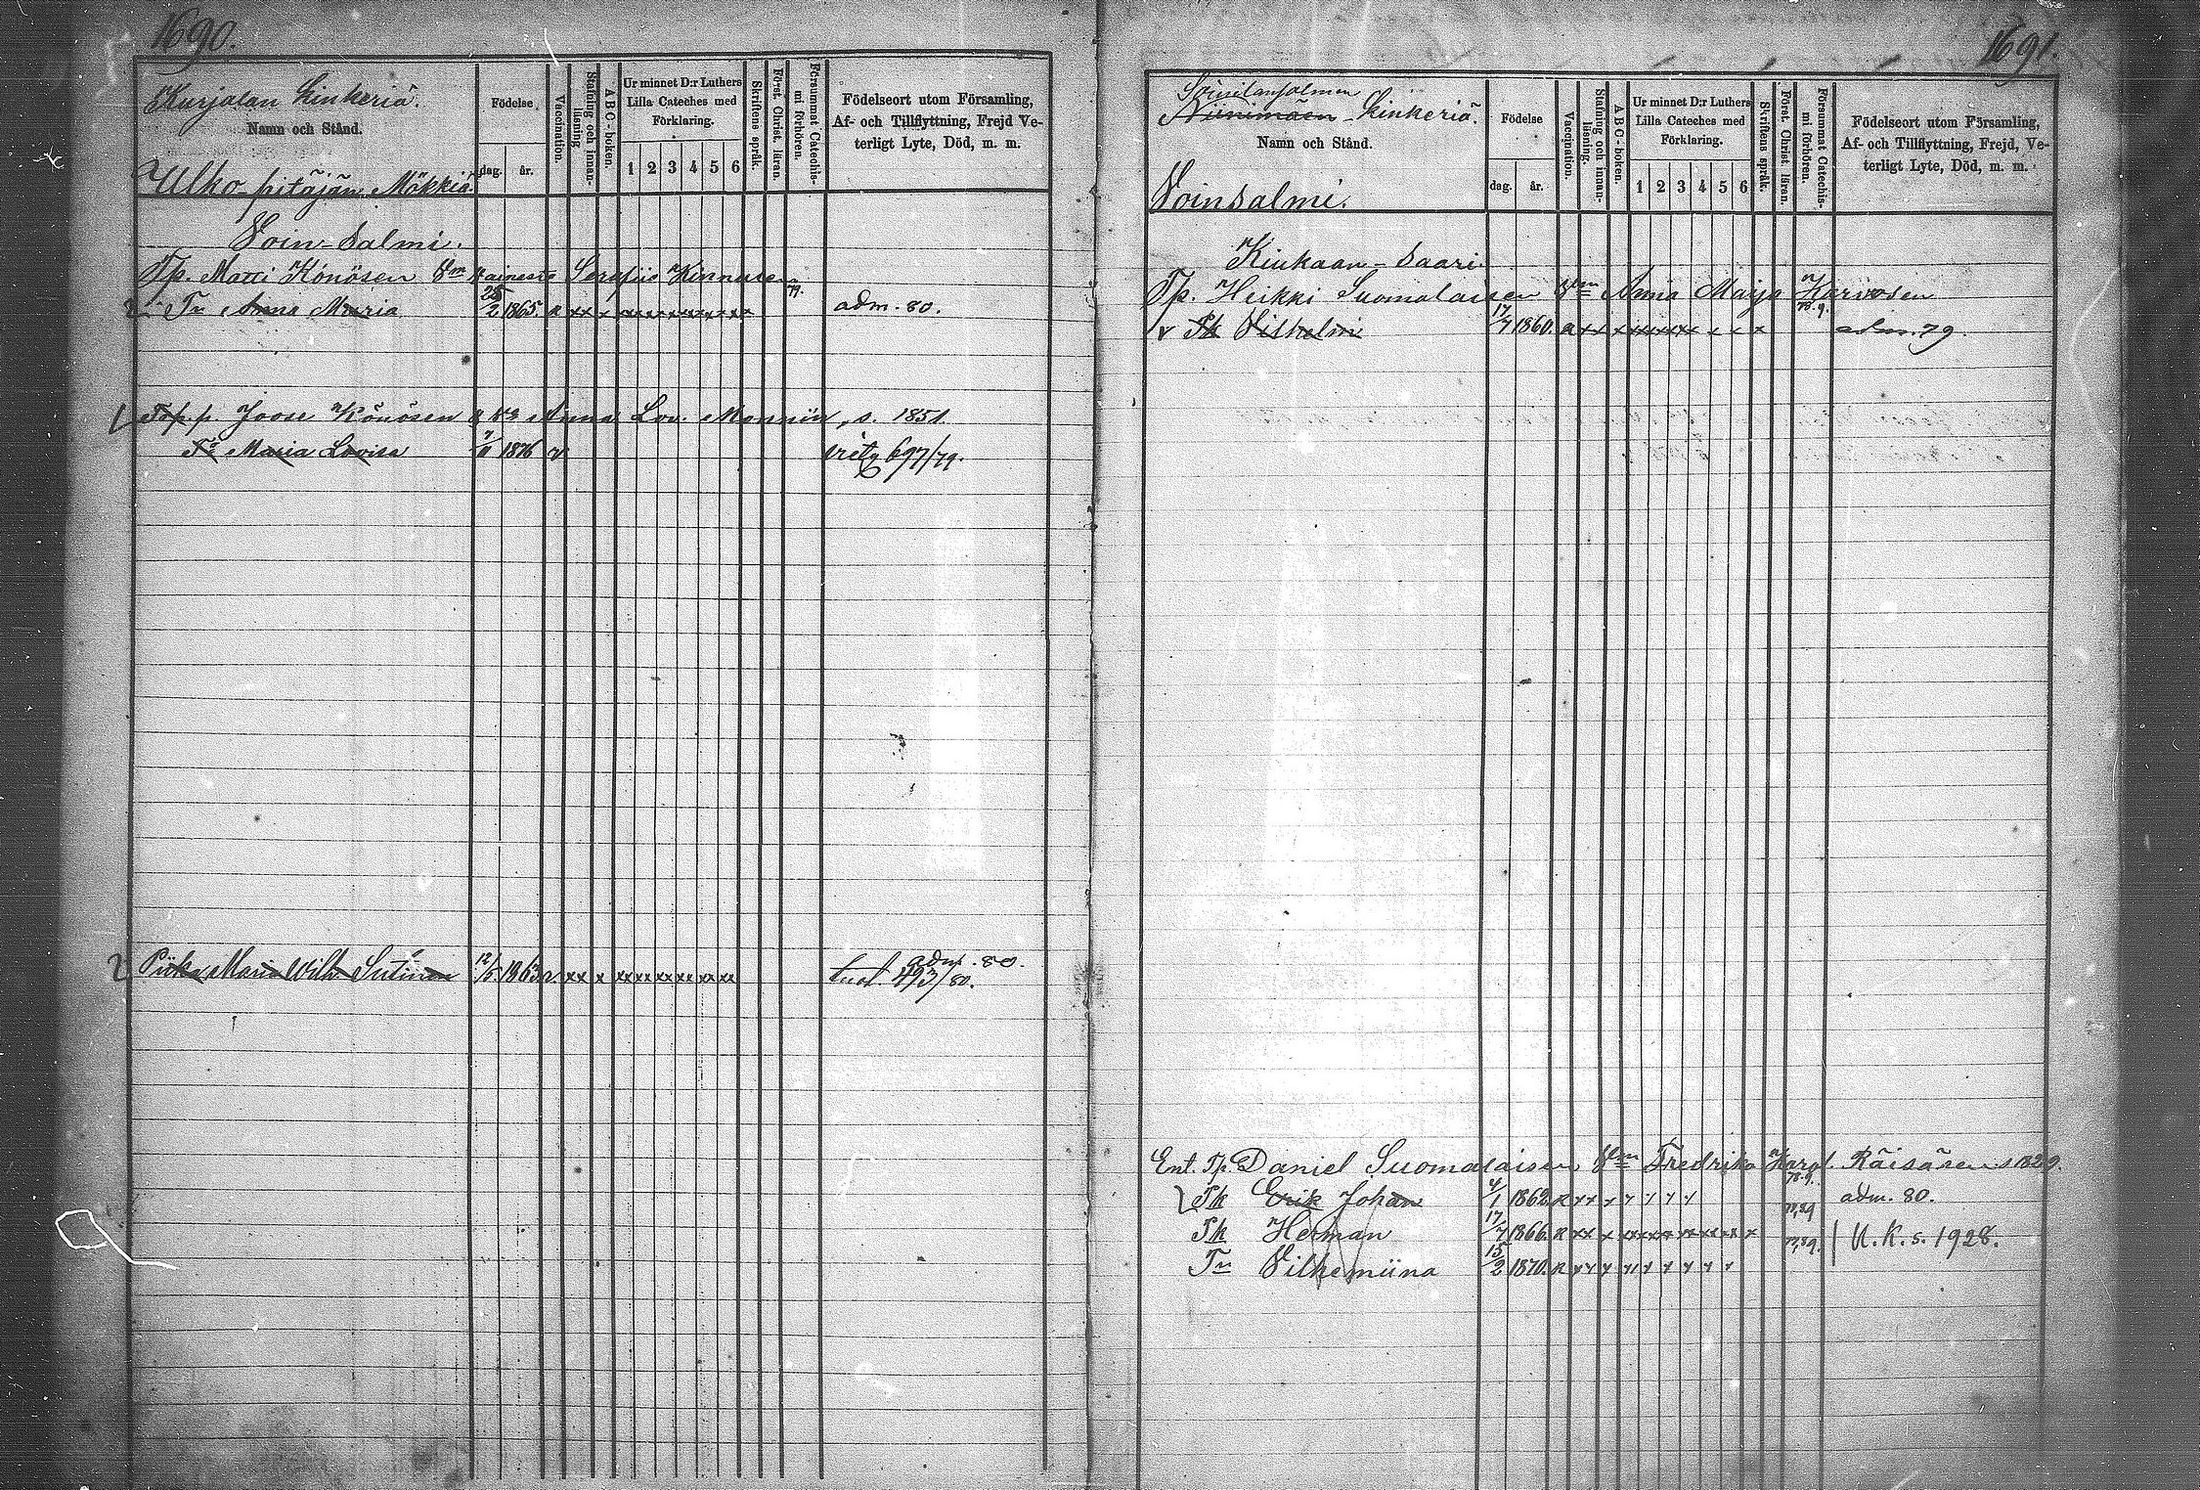 1690.
Kurjalan kinkeriä.
Namn och Stånd.
Födelse.
dag. år.
Vaccination.
Stafning och innan-läsning
A B C - boken.
Ur minnet D:r Luthers Lilla Cateches med Förklaring.
1 2 3 4 5 6
Skriftens språk.
Förat. Christ. läran.
Försummat Catechis-mi förhören.
Födelseort utom Församling,
Af- och Tillflyttning, Frejd Ve-
terligt Lyte, Död, m. m.
Ulko-pitäjän Mökkiä
Voin-Salmi.
Tp. Matti Könösen Serafiis Kinnusen 79.
2 Tr Anna Maria 25/2 1865. R xx x xx xx xx xx xx xx x adm. 80.
p. Joose Könösen Anna Lov. Monnin, s. 1851.
Tr Maria Lovisa 7/11 1876 v 697/79.
2 Piika Maria Wilh. Sutinen 12/5 1863 v. xx x xx xx xx xx xx xx adm. 80.
493/80.
1691.
Niinimäen - kinkeriä.
Namn och Stånd.
Födelse
dag. år.
Vaccination.
Stafning och innan-läsning.
A B C - boken.
Ur minnet D:r Luthers Lilla Cateches med Förklaring.
1 2 3 4 5 6
Skriftens språk.
Förat. Christ. läran.
Försummat Catechis-mi förhören.
Födelseort utom Församling,
Af- och Tillflyttning, Frejd, Ve-
terligt Lyte, Död, m. m.
Voinsalmi.
Kiukaan-Saari
Tp. Heikki Suomalaisen Anna Maija Karvosen
v Pk Vilhelmi 17/7 1860. adm. 79.
Ent. Tp. Daniel Suomalaisen Fredrika Karol. Räisäsen s. 1829.
Pk Erik Johan 4/1 1862 R xx x x x x x adm. 80.
Pk Herman 17/7 1866. R xx x xx xx xx xx xx x U.K.s. 1928.
Tr Vilhemiina 15/2 1870. R